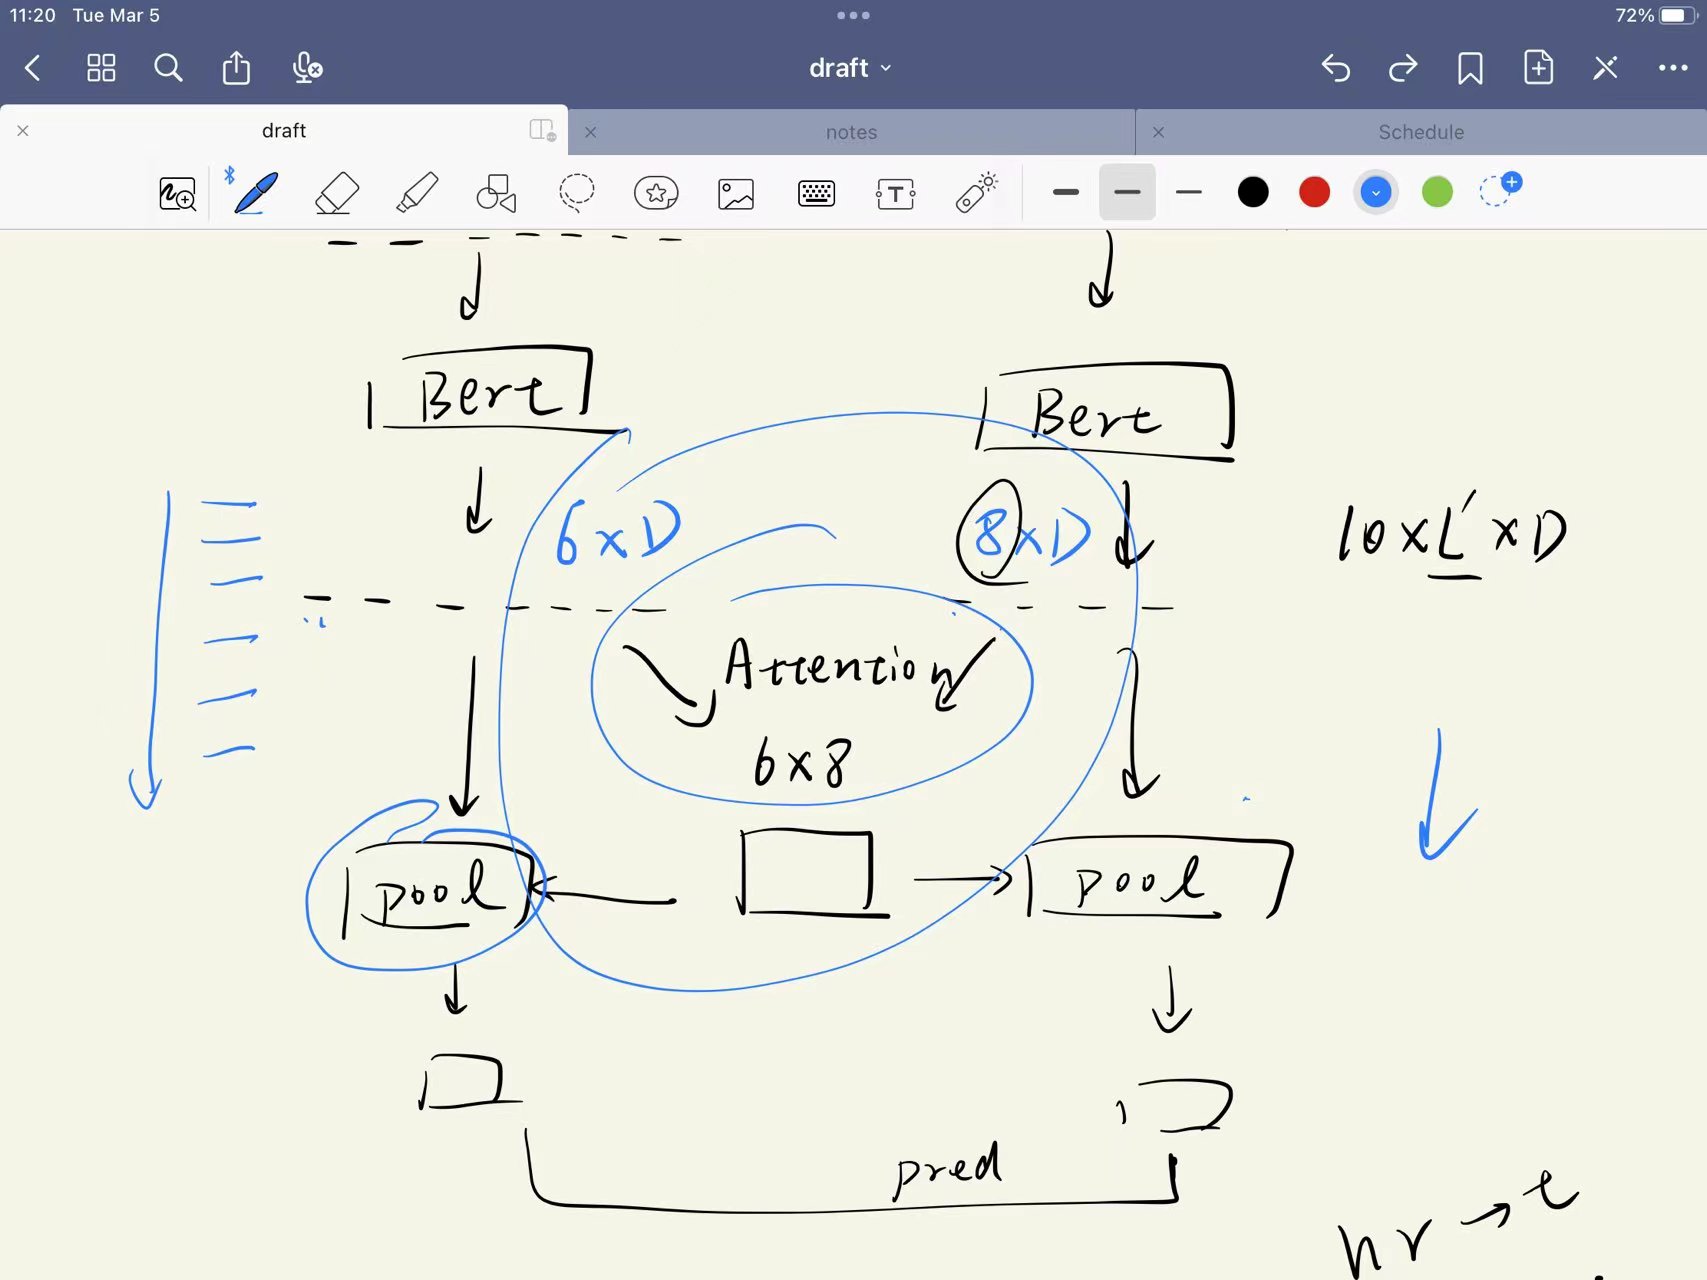 11:20 Tue Mar 5 72%
draft
draft notes Schedule
T
Bert Bert
6 x D 8 x D 10 x L' x D
Attention
6 x 8
pool pool
pred
hr → t